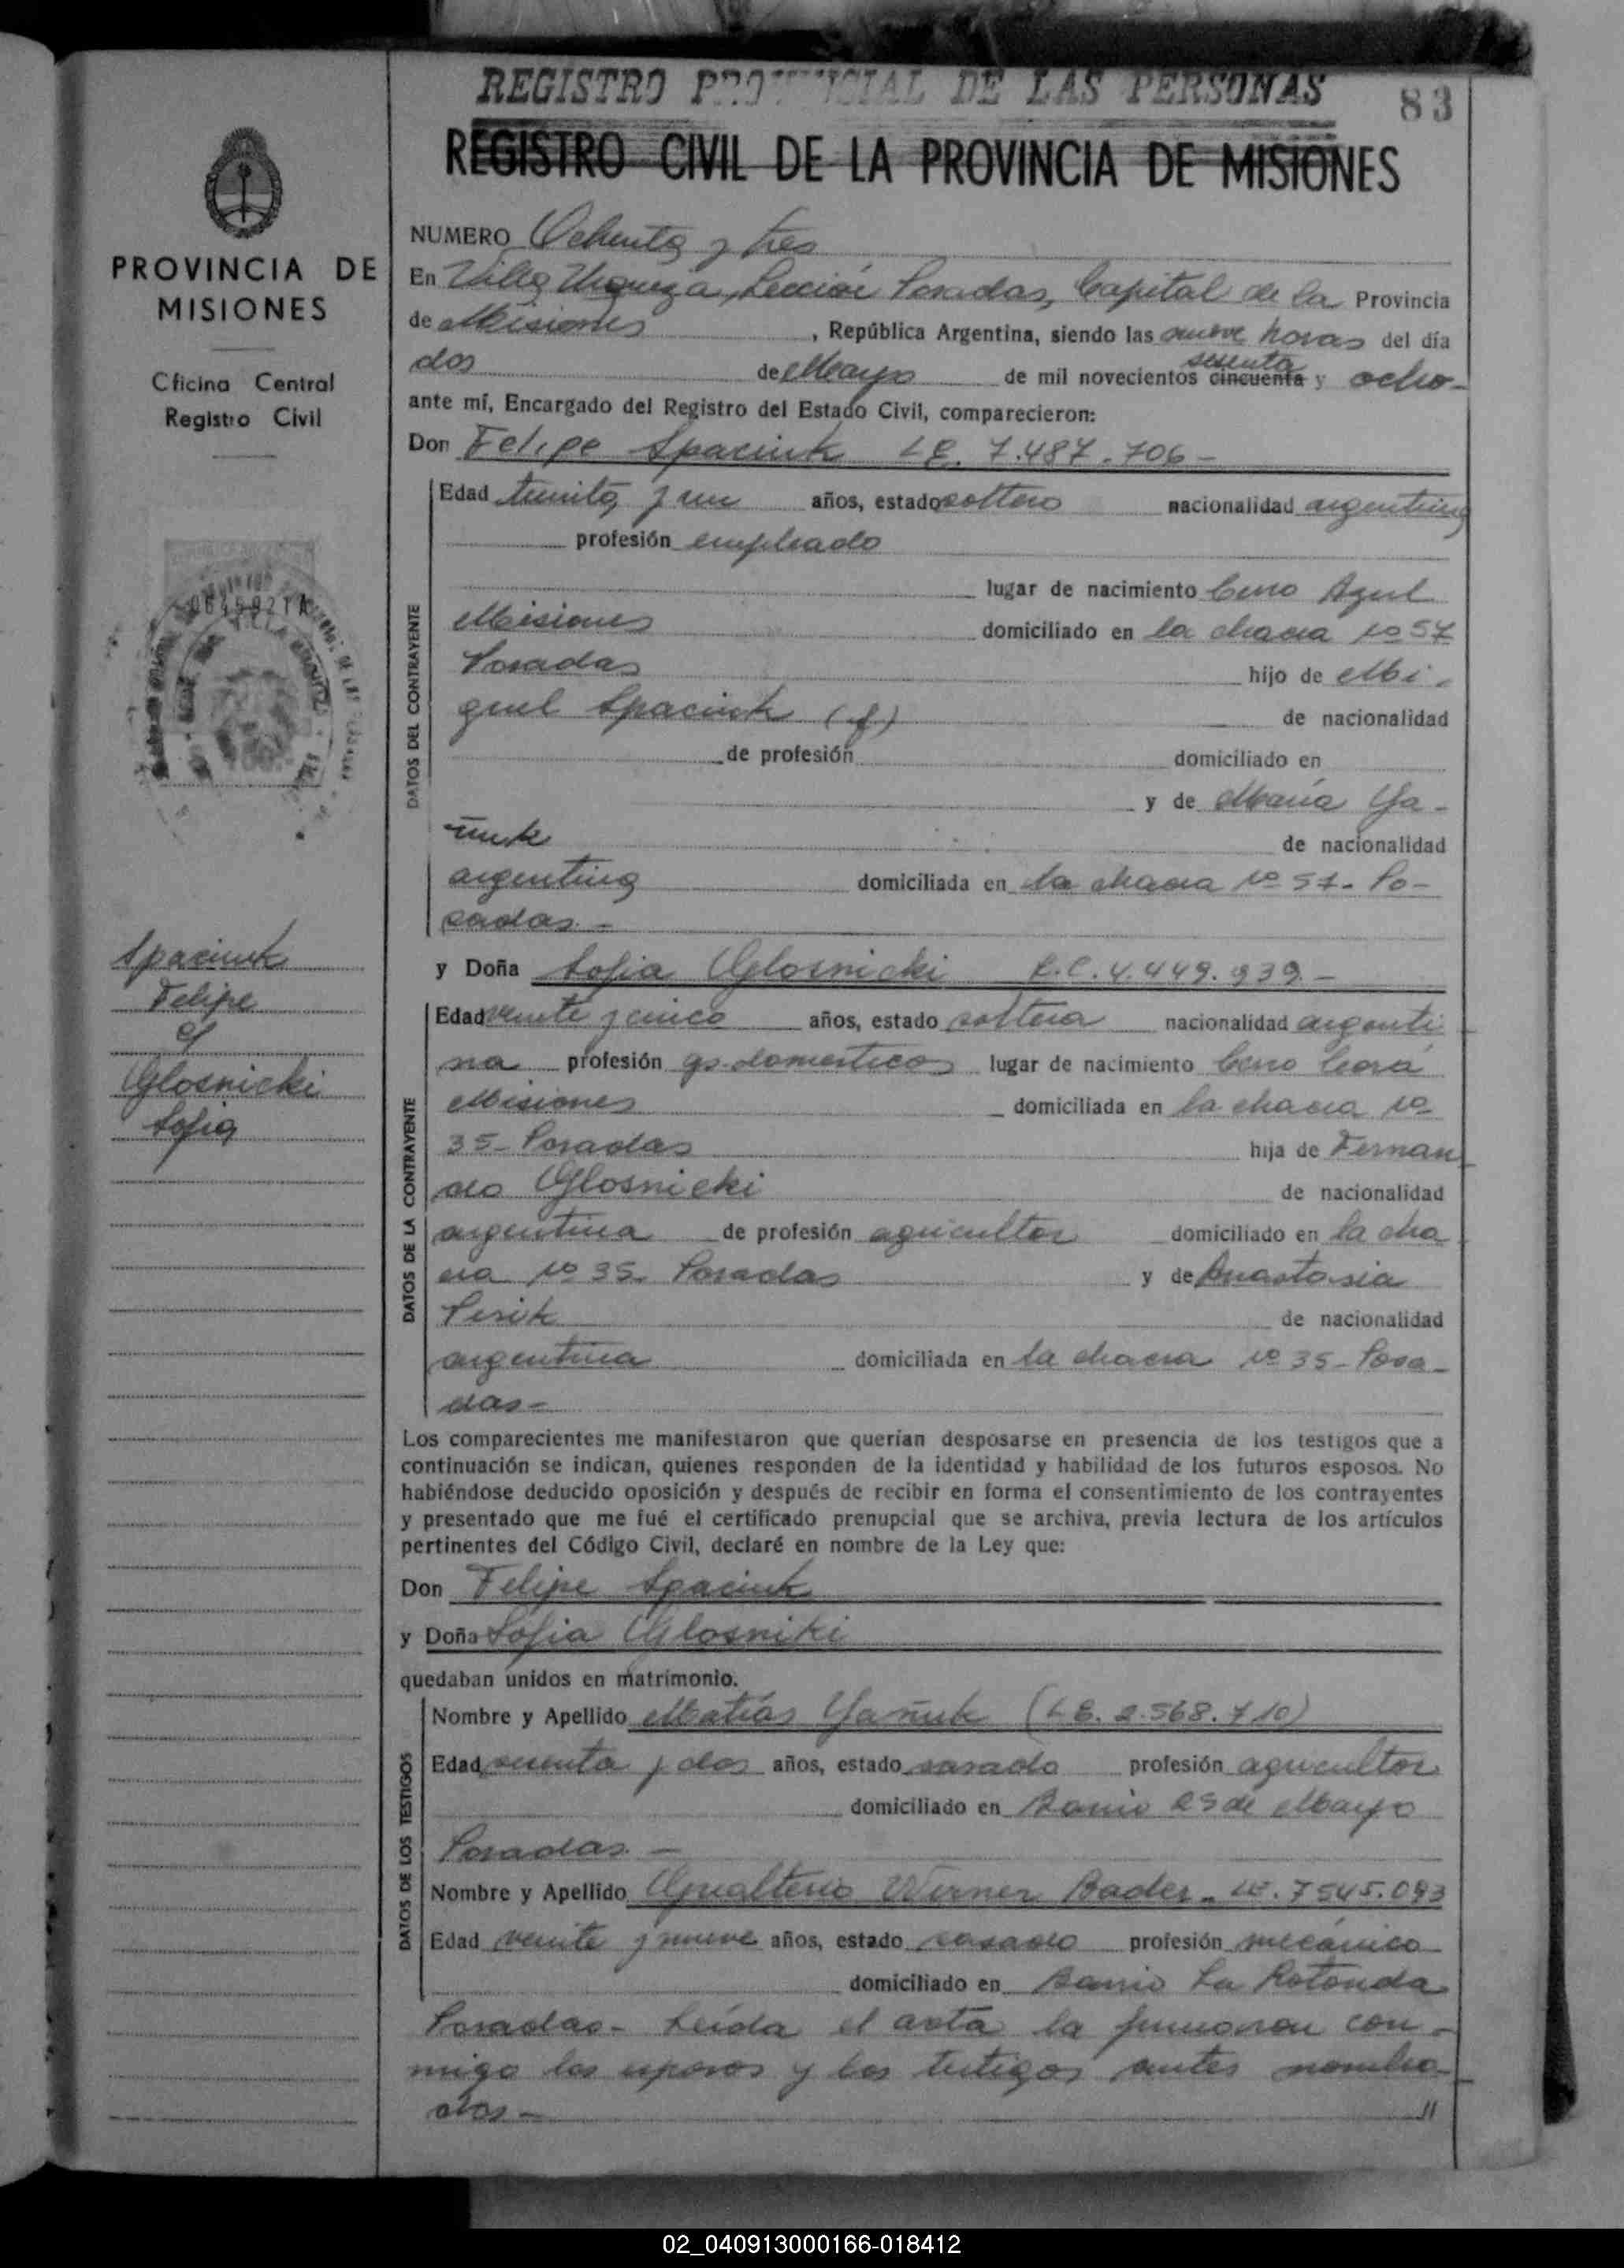 REGISTRO PROVINCIAL DE LAS PERSONAS
83
REGISTRO CIVIL DE LA PROVINCIA DE MISIONES
PROVINCIA DE
MISIONES
Oficina Central
Registro Civil
Spaciuk
Felipe
c/
Glosnicki
Sofia
NUMERO Ochenta y tres
En Villa Urquiza, Sección Posadas, Capital de la Provincia
de Misiones, República Argentina, siendo las nueve horas del día
dos de Mayo de mil novecientos cincuenta sesenta y ocho-
ante mí, Encargado del Registro del Estado Civil, comparecieron:
Don Felipe Spaciuk LE. 7.487.706-
DATOS DEL CONTRAYENTE
Edad treinta y un años, estado soltero nacionalidad argentina
profesión empleado
lugar de nacimiento Cerro Azul
Misiones domiciliado en la chacra Nº 57
Posadas hijo de Mi-
guel Spaciuk (f) de nacionalidad
de profesión domiciliado en
y de María Ya-
ñuk de nacionalidad
argentina domiciliada en la chacra Nº 57- Po-
sadas.-
y Doña Sofia Glosnicki L.C. 4.449.939.-
DATOS DE LA CONTRAYENTE
Edad veinte y cinco años, estado soltera nacionalidad argenti
na profesión qs. domesticos lugar de nacimiento Cerro Corá
Misiones domiciliada en la chacra Nº
35- Posadas hija de Fernan
do Glosnicki de nacionalidad
argentina de profesión agricultor domiciliado en la cha
cra Nº 35. Posadas y de Anastasia
de nacionalidad
argentina domiciliada en la chacra Nº 35- Posa-
das-
Los comparecientes me manifestaron que querían desposarse en presencia de los testigos que a
continuación se indican, quienes responden de la identidad y habilidad de los futuros esposos. No
habiéndose deducido oposición y después de recibir en forma el consentimiento de los contrayentes
y presentado que me fué el certificado prenupcial que se archiva, previa lectura de los artículos
pertinentes del Código Civil, declaré en nombre de la Ley que:
Don Felipe Spaciuk
y Doña Sofia Glosniki
quedaban unidos en matrimonio.
DATOS DE LOS TESTIGOS
Nombre y Apellido Matías Yañuk (LE. 2.568.710)
Edad y dos años, estado casado profesión agricultor
domiciliado en Barrio 25 de Mayo
Posadas.-
Nombre y Apellido Gualterio Werner Bader- LE. 7545.093
Edad veinte y nueve años, estado casado profesión mecánico
domiciliado en Barrio La Rotonda
Posadas- Leída el acta la firmaron con-
migo los esposos y los testigos antes nombra-
dos- //
02_040913000166-018412